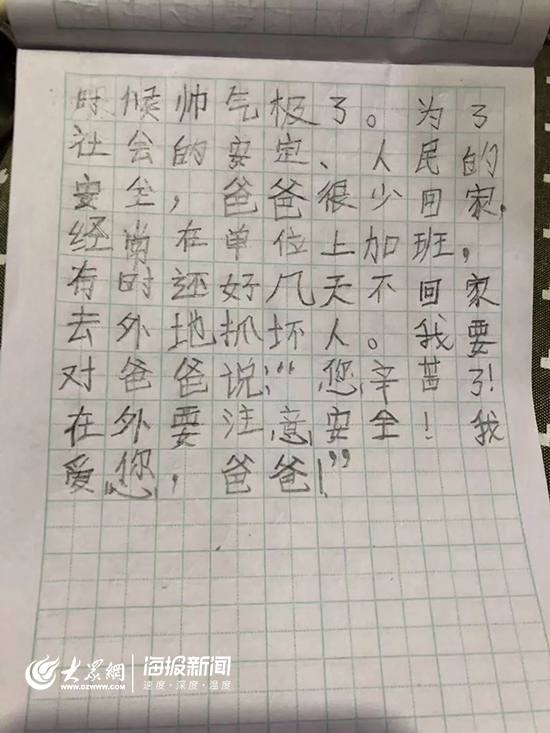 时候帅气极了。为了
社会的安定、人民的
安全，爸爸很少回家，
经常在单位上加班，
有时还好几天不回家
去外地抓坏人。我要
对爸爸说：“您辛苦了！
在外要注意安全！我
爱您，爸爸！”
大众网 海报新闻
WWW.DZWWW.COM 速度·深度·温度